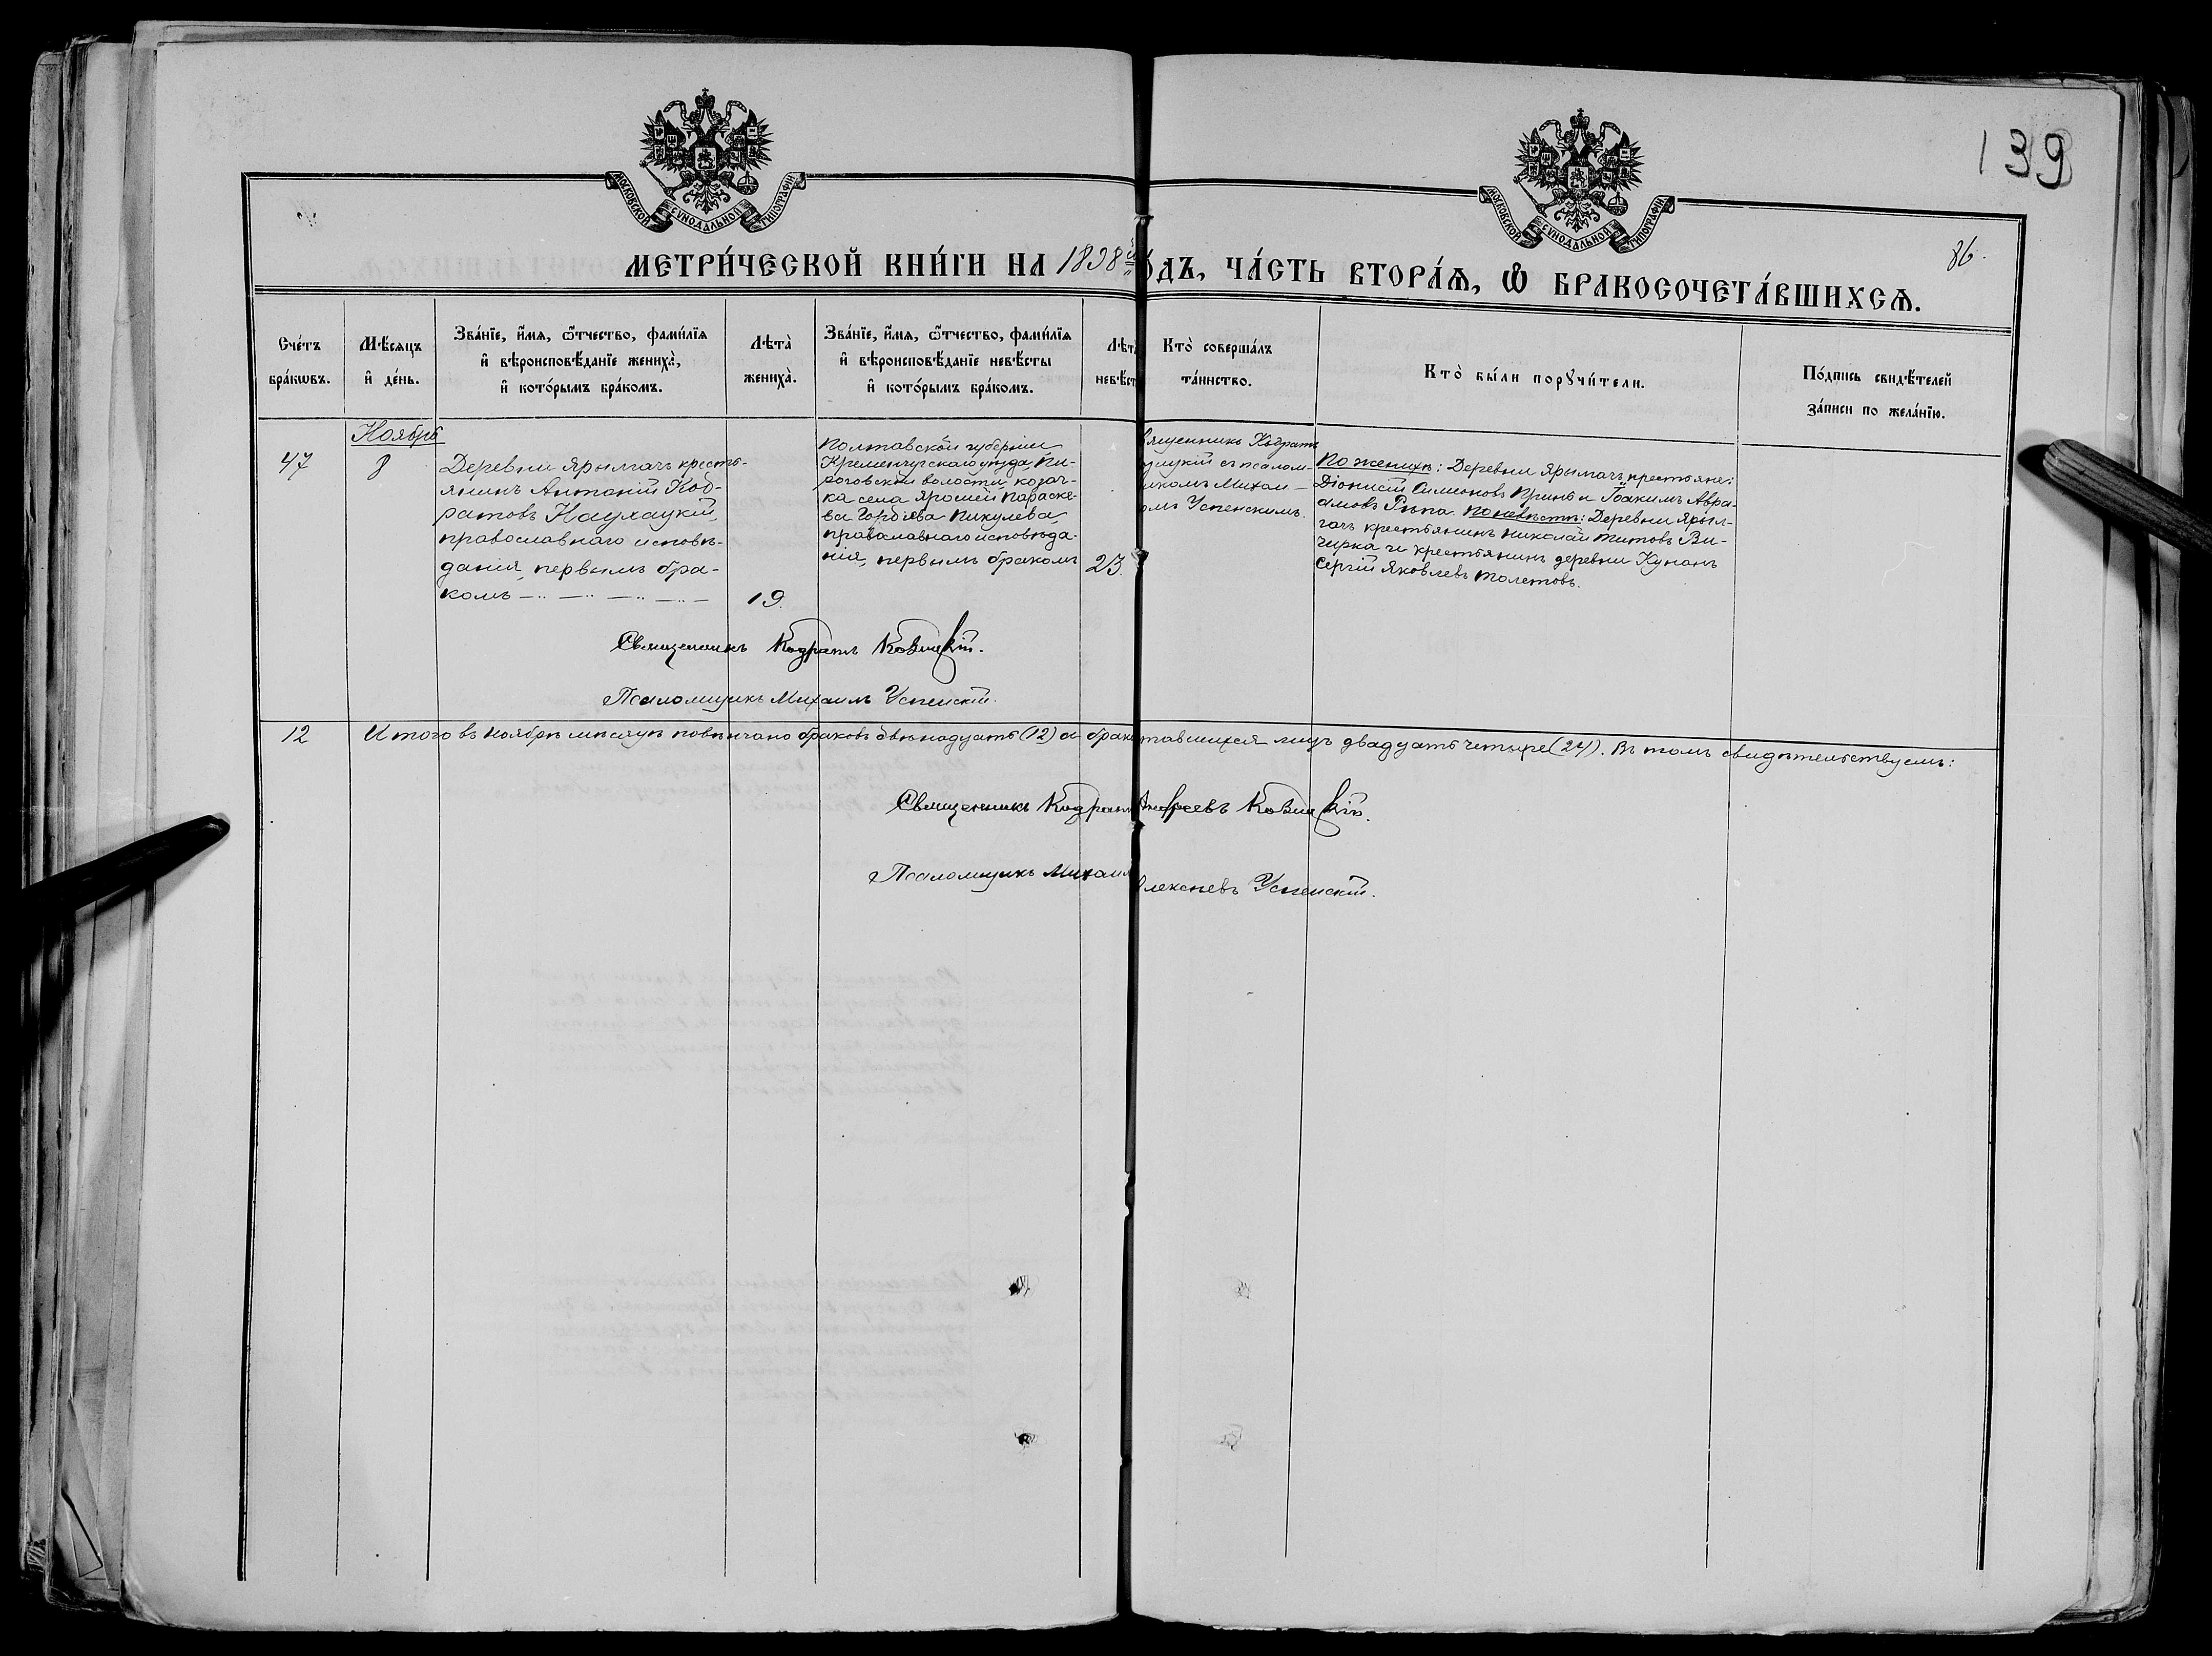 139
МОСКОВСКОЙ СѴНОДАЛЬНОЙ ТИПОГРАФІИ
МОСКОВСКОЙ СѴНОДАЛЬНОЙ ТИПОГРАФІИ
86.
МЕТРИ́ЧЕСКОЙ КНИ́ГИ НА 1898 й ОДЪ, ЧА́СТЬ ВТОРА́Ѧ, Ѽ БРАКОСОЧЕТА́ВШИХСѦ.
Сче́тъ
бра́кωвъ.
Мѣ́сяцъ
и҆ де́нь.
Зва́нїе, и҆́мя, ѻ҆́тчество, фами́лїя
и҆ вѣроисповѣ́данїе жениха̀,
и҆ кото́рымъ бра́комъ.
Лѣта̀
жениха̀.
Зва́нїе, и҆́мя, ѻ҆́тчество, фами́лїя
и҆ вѣроисповѣ́данїе невѣ́сты
и҆ кото́рымъ бра́комъ.
Лѣта
невѣ́ст
Кто̀ соверша́лъ
та́инство.
Кто̀ бы́ли порꙋчи́тели.
По́дпись свидѣ́телей
за́писи по жела́нїю.
47
Ноябрь
8
Деревни Ярылгачъ кресть-
янинъ Антоній Код-
ратовъ Наухацкій,
православнаго исповѣ-
данія, первымъ бра-
комъ
19.
Полтавской губерніи
Кременчугскаго уѣзда, Пи-
роговской волости, козач-
ка села Ярошей Параске-
ва Гордіева Пикулева,
православнаго исповѣда-
нія, первымъ бракомъ
23.
вященникъ Кодратъ
съ псалом-
икомъ Михаи-
омъ Успенскимъ.
По женихѣ: Деревни Ярылгачъ крестьяне:
Діонисій Симеоновъ и Іоакимъ Авра-
амовъ Рѣпа. По невѣстѣ: Деревни Ярыл-
гачъ крестьянинъ Николай Титовъ Ви-
чирка и крестьянинъ деревни Кунанъ
Сергій Яковлевъ Толстовъ.
Священникъ Кодратъ Козицкій.
Псаломщикъ Михаилъ Успенскій.
12 Итого въ Ноябрѣ мѣсяцѣ повѣнчано браковъ двѣнадцать (12) а брако тавшихся лицъ двадцать четыре (24). Въ томъ свидѣтельствуемъ:
Священникъ Кодратъ Андреевъ Козицкій.
Псаломщикъ Михаил лексѣевъ Успенскій.